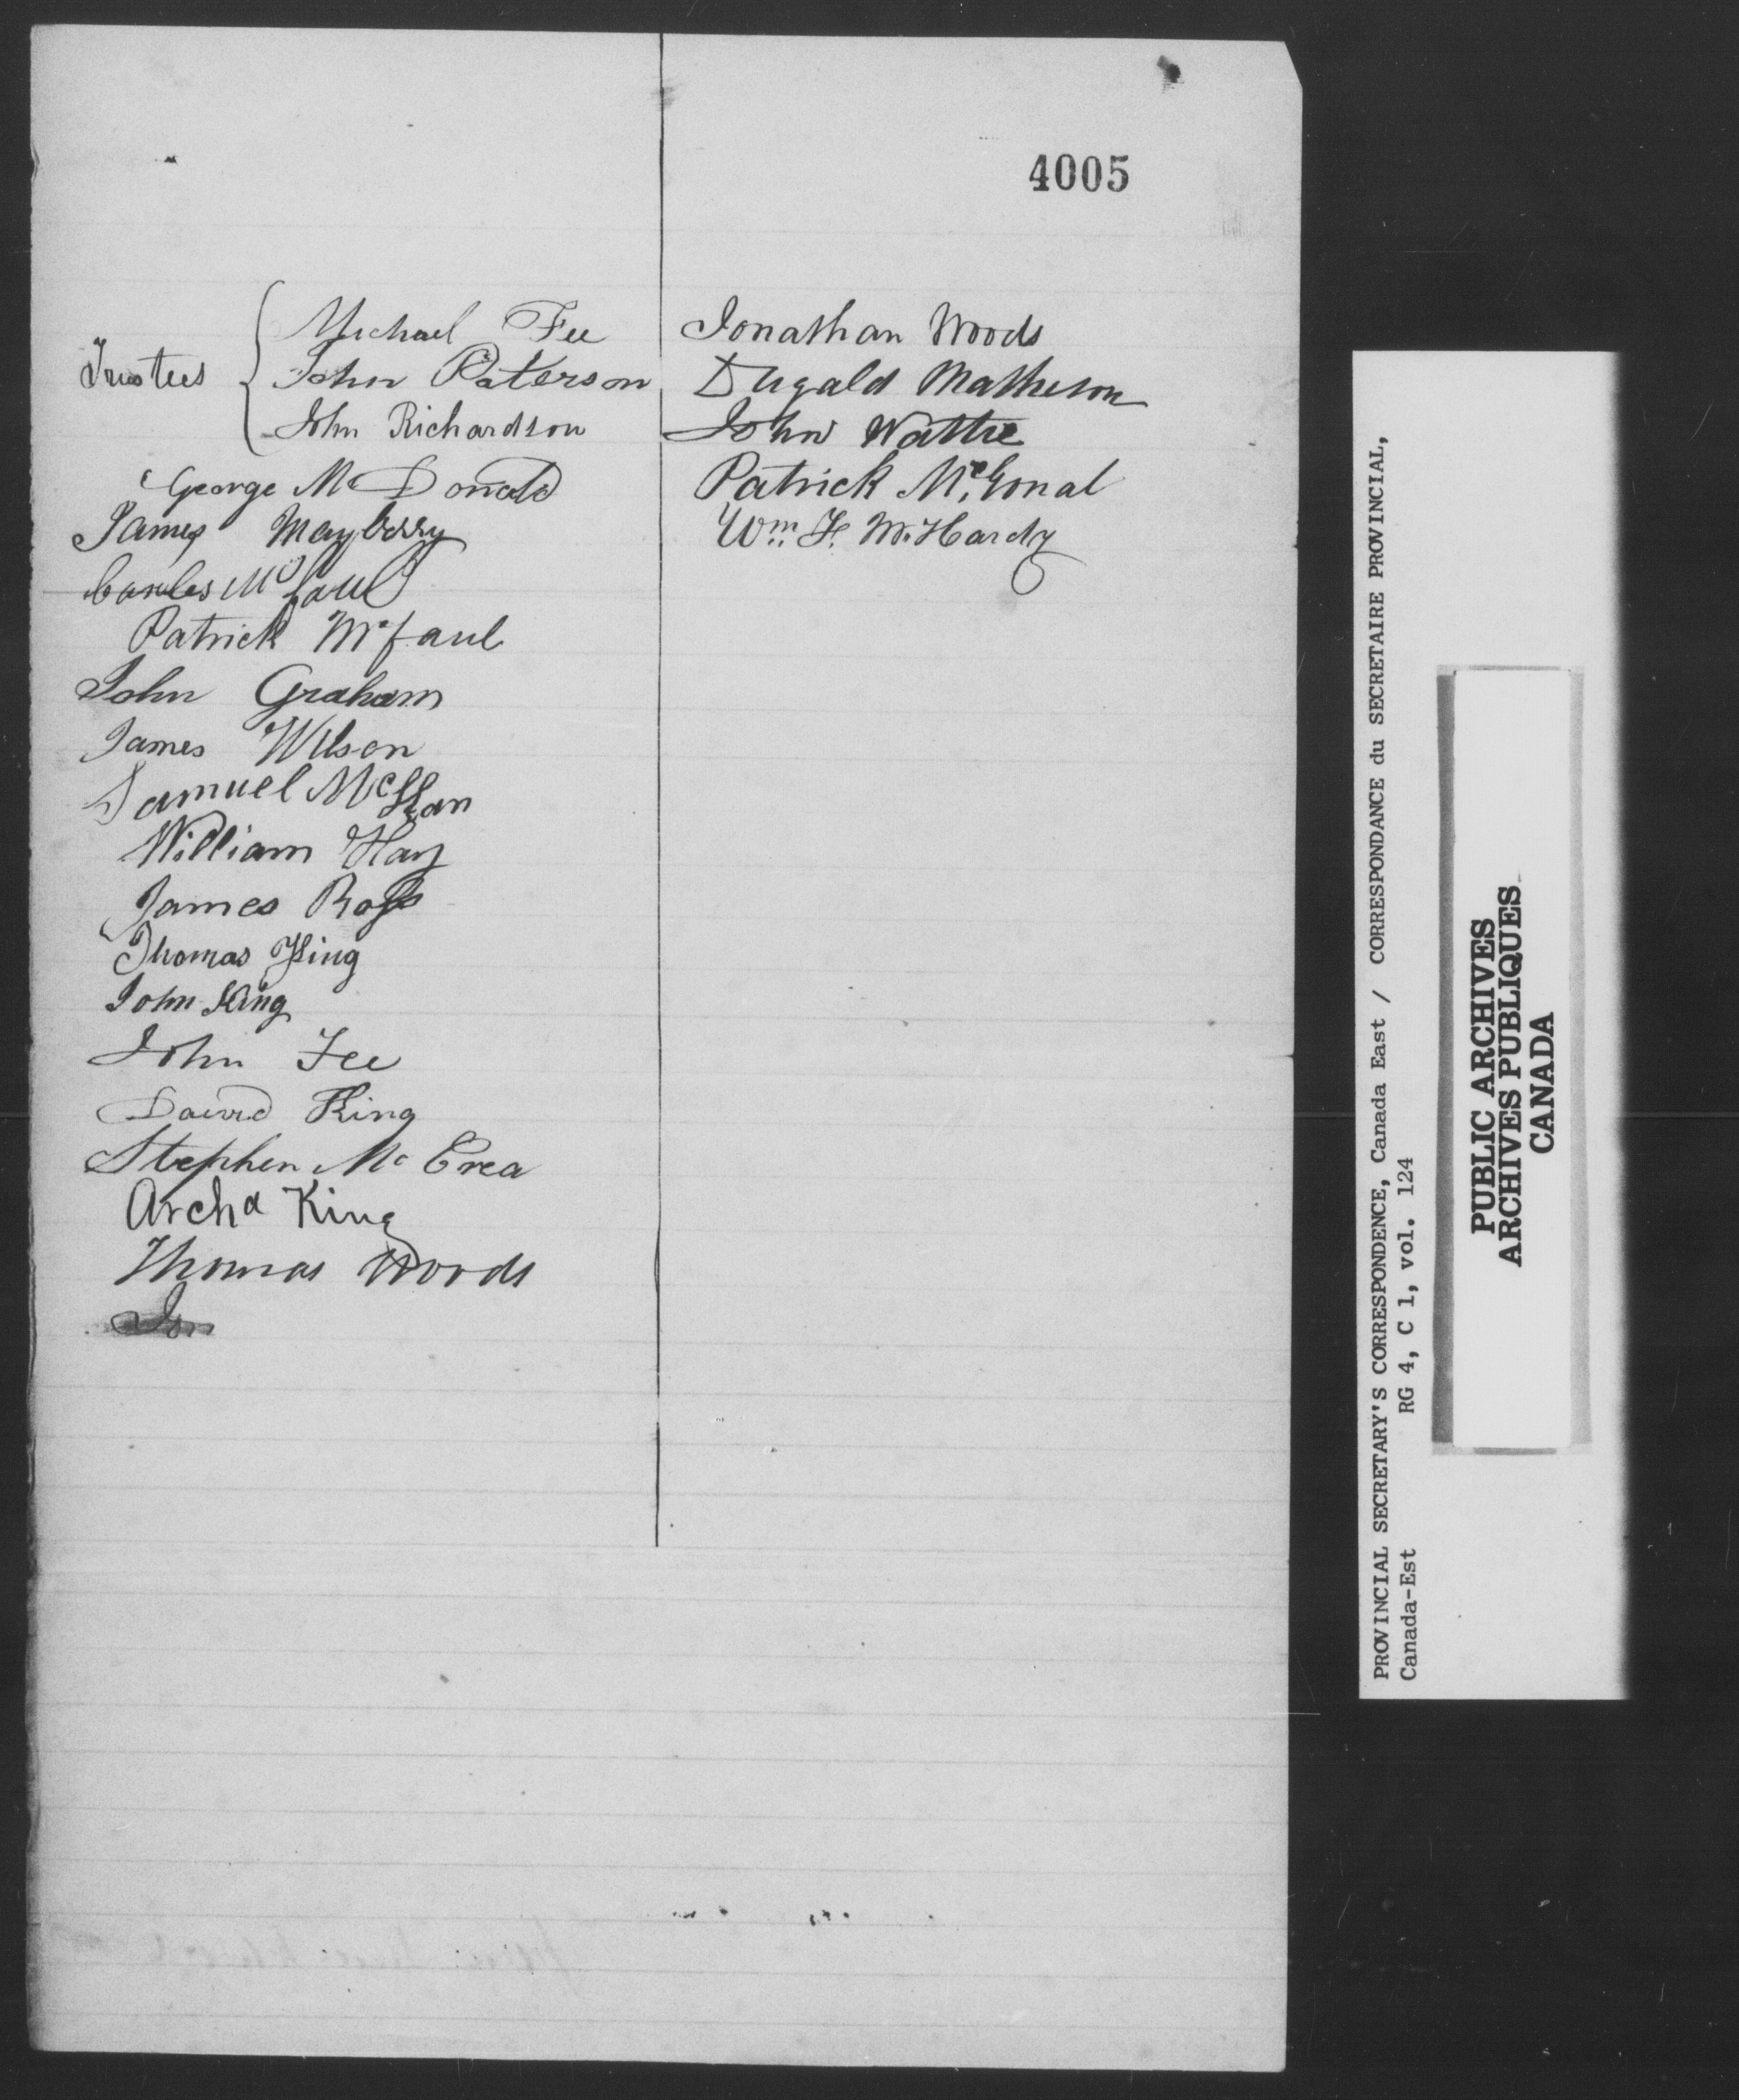 4005
Michael Fee
Trustees { John Paterson
John Richardson
George McDonald
James Mayberry
Carles McFaul
Patrick Mcfaul
John Graham
James Wilson
Samuel Mc
William Hay
James Ross
Thomas King
John King
John Fee
David King
Stephen McCrea
Archd King
Thomas Woods
Jon
Jonathan Woods
Dugald Matheson
John Wattie
Patrick McGonal
Wm. F. McHardy
PROVINCIAL SECRETARY'S CORRESPONDENCE, Canada East / CORRESPONDANCE du SECRETAIRE PROVINCIAL,
Canada-Est RG 4, C 1, vol. 124
PUBLIC ARCHIVES
ARCHIVES PUBLIQUES
CANADA